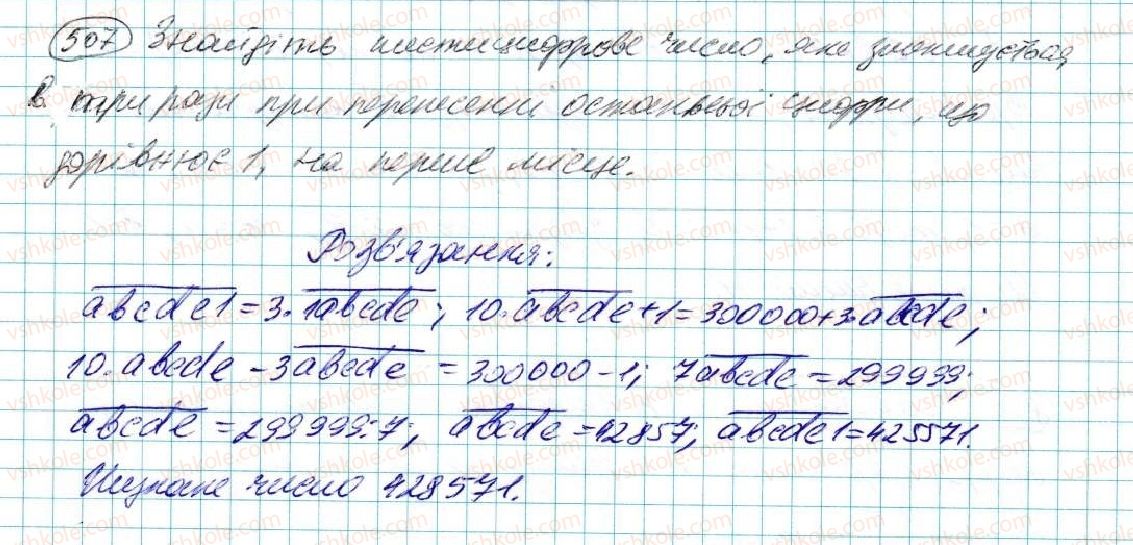 507 Знайдіть шестицифрове число, яке зменшується
в три рази при перенесенні останньої цифри, що
дорівнює 1, на перше місце.
Розв'язання:
abcde1=3·1abcde; 10·abcde+1=300000+3·abcde;
10·abcde-3abcde=300000-1; 7abcde=299999;
abcde=299999:7; abcde=42857; abcde1=425571.
Шукане число 428571.